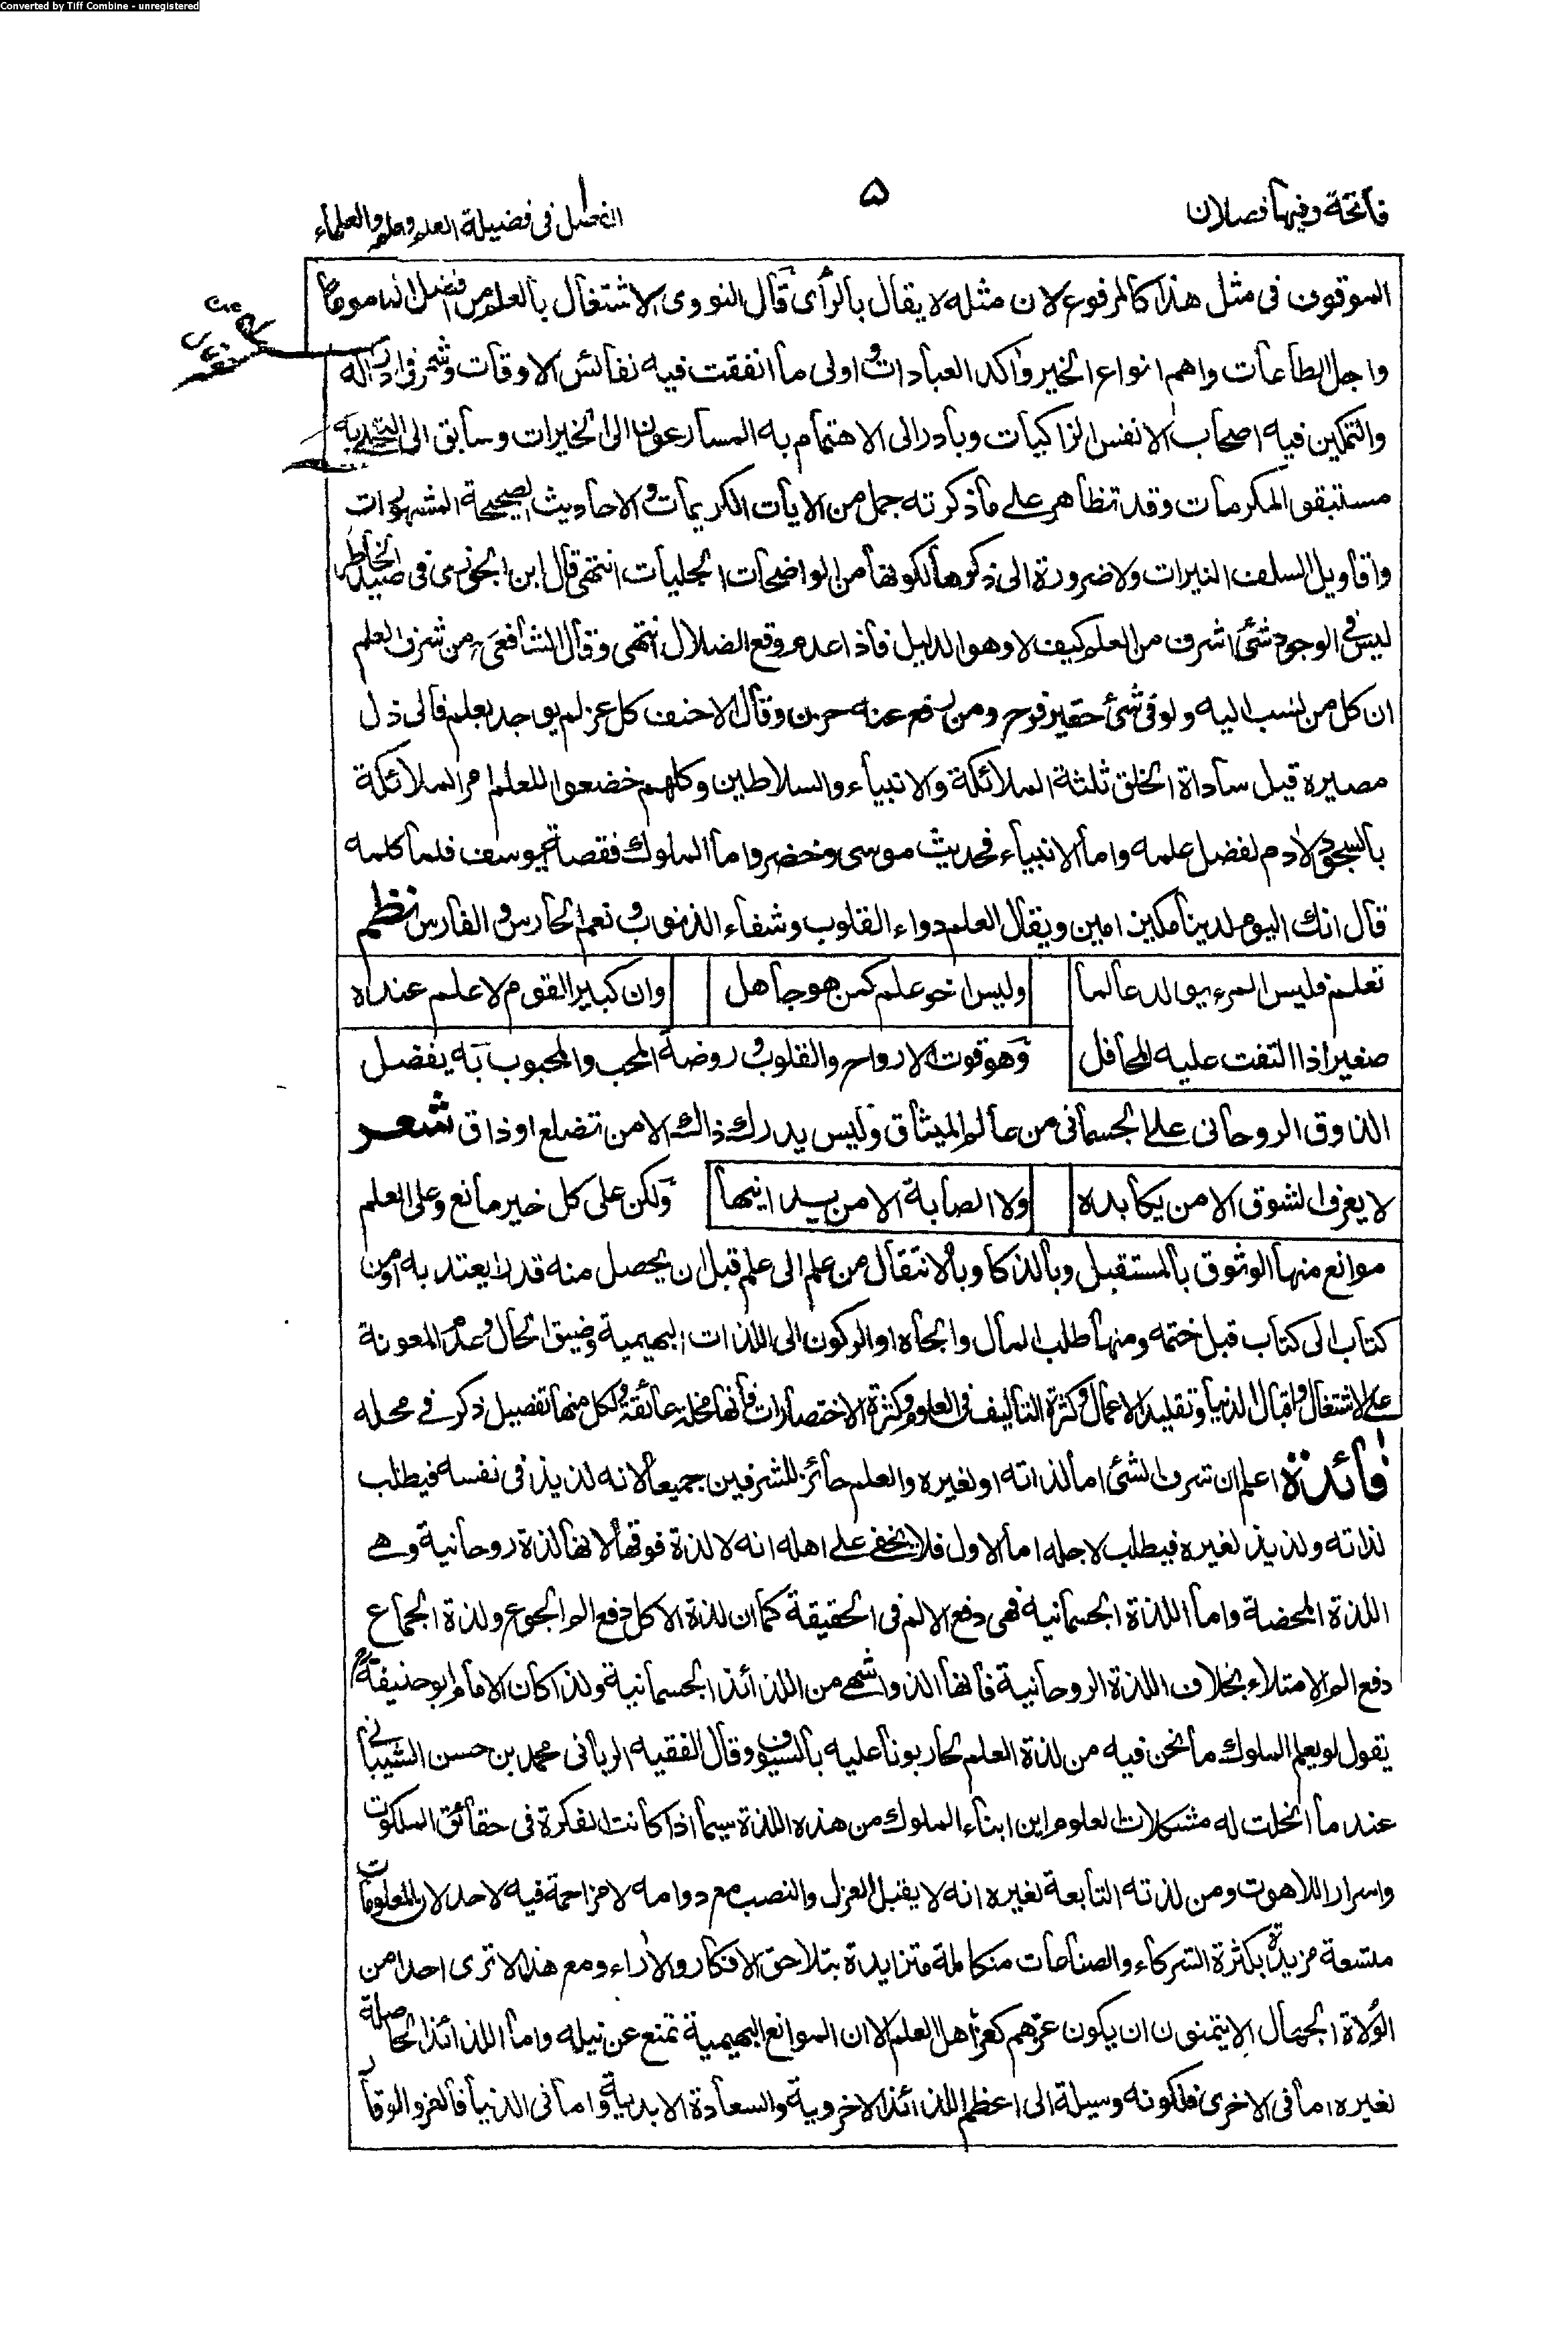 Converted by Tiff Combine - unregistered
فاتحة وفيها فصلان
۵
الفصل في فضيلة العلم وعلم والعلماء
الموقوف فى مثل هذا كالمرفوع لان مثله لا يقال بالرأى قال النووى الاشتغال بالعلم من افضل
واجل الطاعات واهم انواع الخير وآكد العبادات واولى ما انفقت فيه نفائس الاوقات وشمر فى ادراكه
والتمكين فيه اصحاب الانفس الزاكيات وبادر الى الاهتمام به المسارعون الى الخيرات وسابق الى التحلى به
مستبقو المكرمات وقد تظاهر على ما ذكرته جمل من الايات الكريمات والاحاديث الصحيحة المشهورات
واقاويل السلف النيرات ولا ضرورة الى ذكرها لكونها من الواضحات الجليات انتهى قال ابن الجوزى فى صيد الخاطر
ليس فى الوجود شئ اشرف من العلم كيف لا وهو الدليل فاذا عدم وقع الضلال انتهى وقال الشافعى من شرف العلم
ان كل من نسب اليه ولو فى شئ حقير فرح ومن رفع عنه حزن وقال الاحنف كل عز لم يوجد بعلم فالى ذل
مصيره قيل سادات الخلق ثلثة الملائكة والانبياء والسلاطين وكلهم خضعوا للعلم امر الملائكة
بالسجود لادم لفضل علمه واما الانبياء فحديث موسى وخضر واما الملوك فقصة يوسف فلما كلمه
قال انك اليوم لدينا مكين امين ويقال العلم دواء القلوب وشفاء الذنوب ونعم الحارس والفارس نظم
تعلم فليس المرء يولد عالما وليس اخو علم كمن هو جاهل وان كبير القوم لا علم عنده
صغير اذا التفت عليه المحافل وهو قوت الارواح والقلوب وروضة المحب والمحبوب به يفضل
الذوق الروحانى على الجسمانى من عالم الميثاق وليس يدرك ذاك الا من تضلع او ذاق شعر
لا يعرف الشوق الا من يكابده ولا الصبابة الا من يعانيها ولكن على كل خير مانع وعلى العلم
موانع منها الوثوق بالمستقبل وبالذكا وبالانتقال من علم الى علم قبل ان يحصل منه قدرا يعتد به او من
كتاب الى كتاب قبل ختمه ومنها طلب المال والجاه او الركون الى اللذات البهيمية وضيق الحال وعدم المعونة
على الاشتغال واقبال الدنيا وتقليد الاعمال وكثرة التأليف فى العلوم وكثرة الاختصارات فانها مخلة عائقة ولكل منها تفصيل ذكر فى محله
فائدة اعلم ان شرف الشئ اما لذاته او لغيره والعلم حائز للشرفين جميعا لانه لذيذ فى نفسه فيطلب
لذاته ولذيذ لغيره فيطلب لاجله اما الاول فلا يخفى على اهله انه لا لذة فوقها لانها لذة روحانية وهى
اللذة المحضة واما اللذة الجسمانيه فهى دفع الالم فى الحقيقة كما ان لذة الاكل دفع الم الجوع ولذة الجماع
دفع الم الامتلاء بخلاف اللذة الروحانية فانها الذ واشهى من اللذائذ الجسمانية ولذا كان الامام ابو حنيفة
يقول لو يعلم الملوك ما نحن فيه من لذة العلم لحاربونا عليه بالسيوف وقال الفقيه الربانى محمد بن حسن الشيبانى
عند ما انحلت له مشكلات العلوم اين ابناء الملوك من هذه اللذة سيما اذا كانت الفكرة فى حقائق الملكوت
واسرار اللاهوت ومن لذته التابعة لغيره انه لا يقبل العزل والنصب مع دوامه لا مزاحمة فيه لاحد لان المعلومات
متسعة مزيدة بكثرة الشركاء والصناعات متكاملة متزايدة بتلاحق الافكار والاراء ومع هذا لا ترى احدا من
الولاة الجهال الا يتمنون ان يكون عزهم كعز اهل العلم الا ان الموانع البهيمية تمنع عن نيله واما اللذائذ الحاصلة
لغيره اما فى الاخرى فلكونه وسيلة الى اعظم اللذائذ الاخروية والسعادة الابدية واما فى الدنيا فالعز والوقار